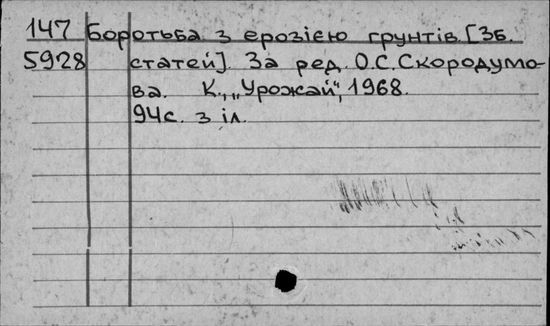 147 Боротьба з ерозією грунтів. [Зб.
5928 статей]. За ред. О.С. Скородумо-
ва. К., „Урожай", 1968.
94с. з іл.